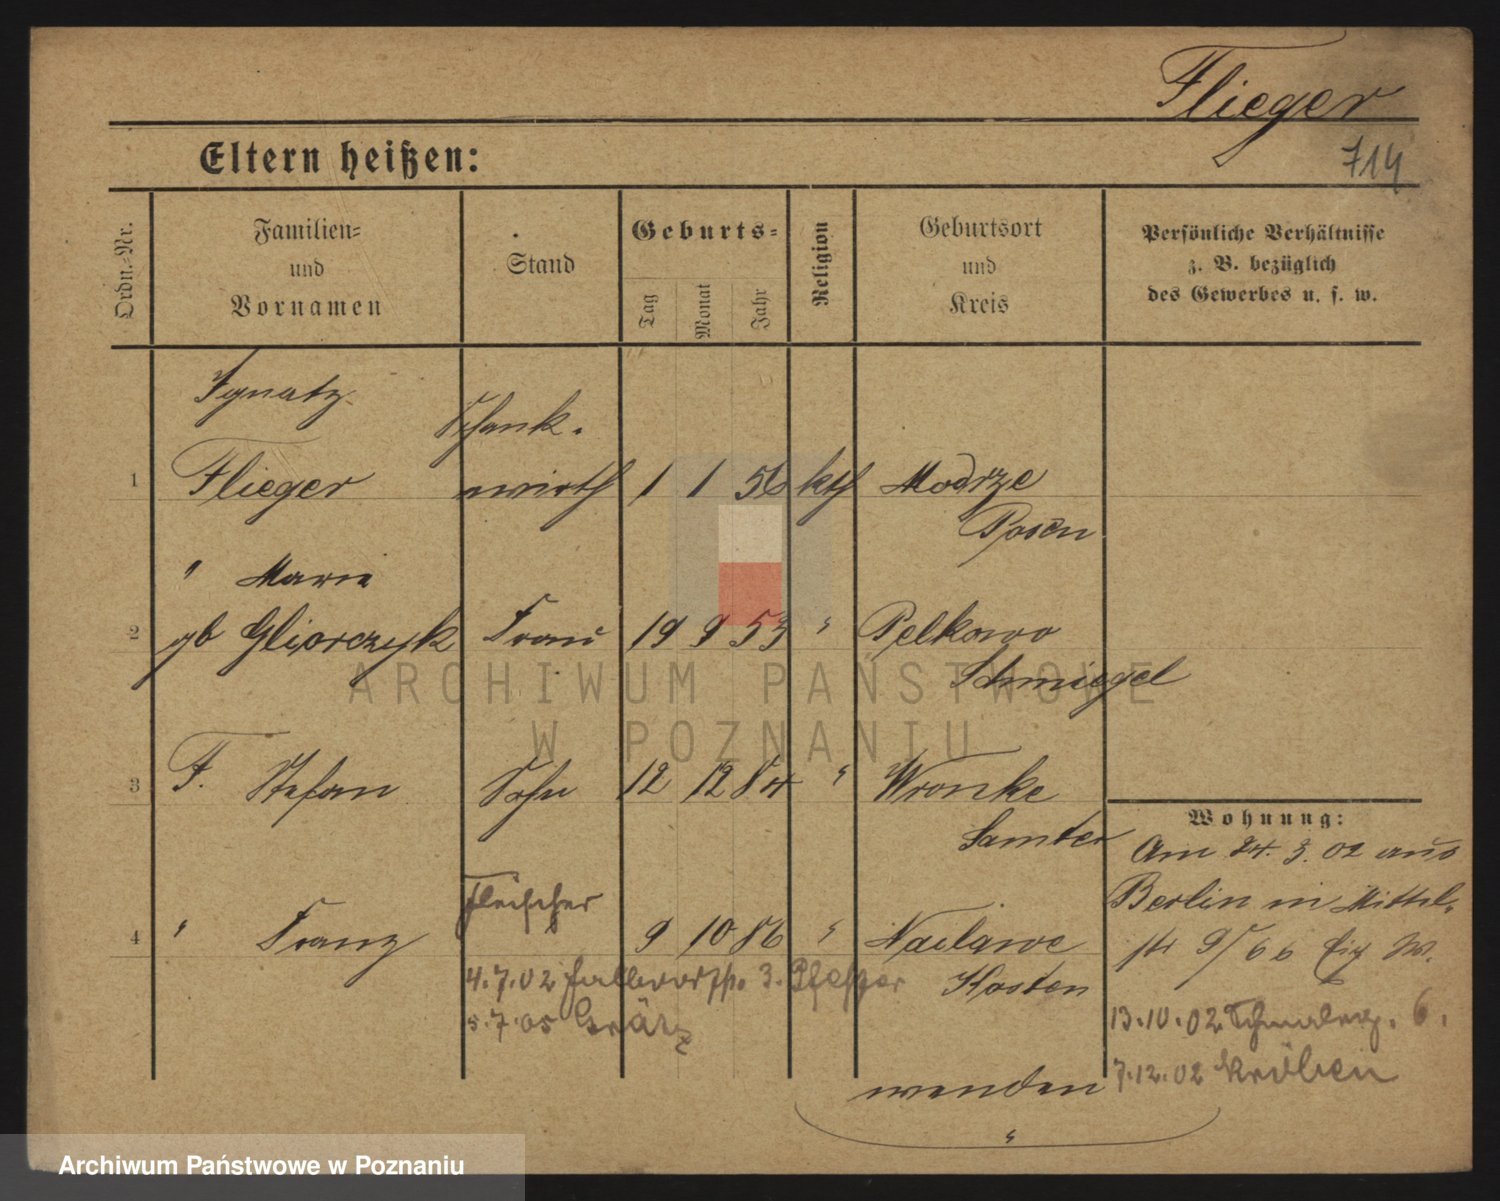 Flieger
714
Eltern heißen:
Ordn.-Nr.
Familien-
und
Vornamen
Stand
Geburts-
Tag
Monat
Jahr
Religion
Geburtsort
und
Kreis
Persönliche Verhältnisse
z. B. bezüglich
des Gewerbes u. s. w.
Ignatz
Schank-
1 Flieger wirth 1 1 56 kth Modrze
Posen
" Marie
2 gb Frau 19 9 53 " Pelkowo
Schmiegel
3 F. Stefan Sohn 12 12 84 " Wronke
Samter
Wohnung:
Am 24. 3. 02 aus
Berlin in Mittel-
Fleischer
4 " Franz 9 10 86 " Naclawe
str 9/ 6 b W.
4.7.02 3.
Kosten
5.7.05 Grätz
13.10.02 6.
7.12.02 Kröben
wenden
ARCHIWUM PAŃSTWOWE
W POZNANIU
Archiwum Państwowe w Poznaniu